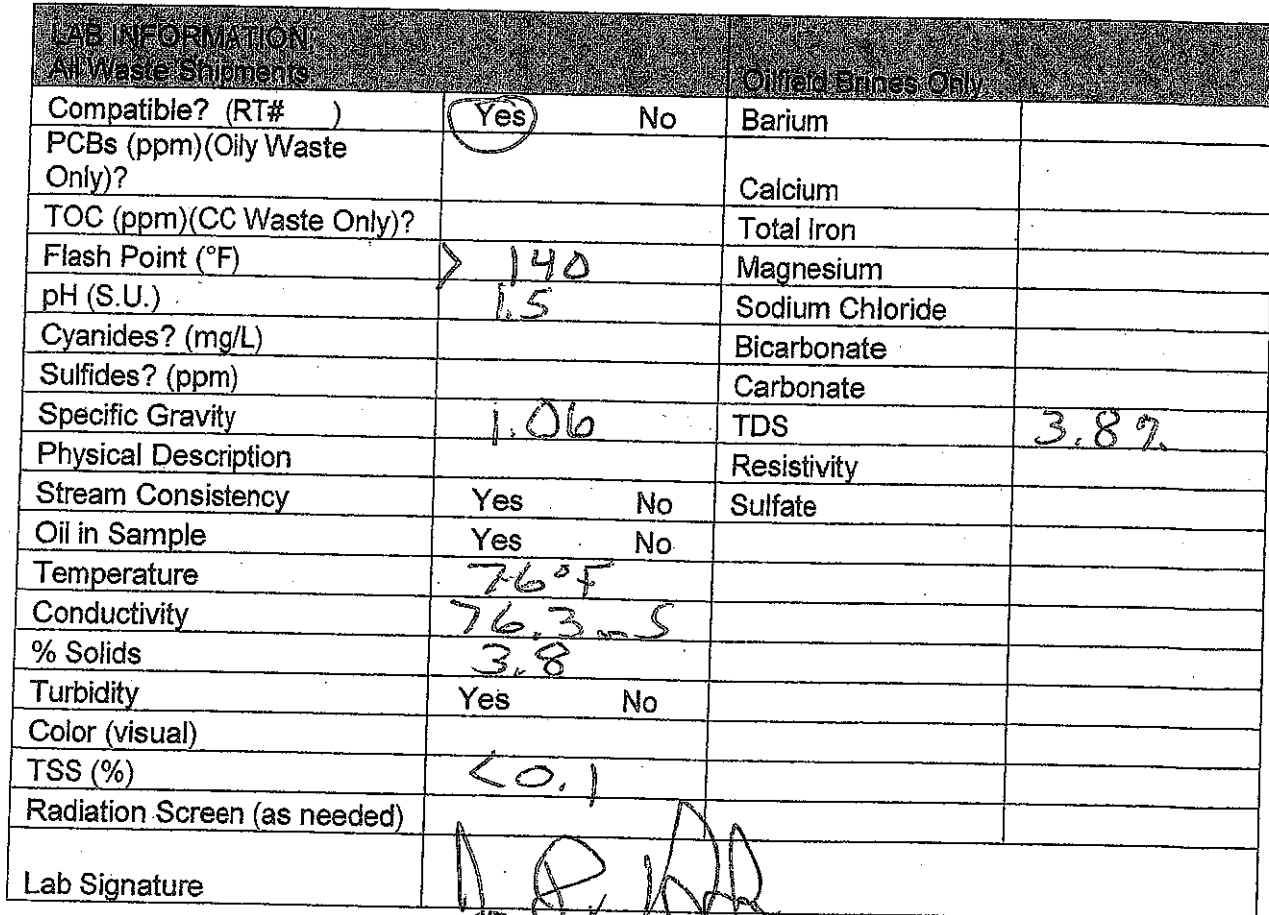 LAB INFORMATION:
All Waste Shipments Oilfield Brines Only
Compatible? (RT# ) Yes No Barium
PCBs (ppm)(Oily Waste
Only)? Calcium
TOC (ppm)(CC Waste Only)? Total Iron
Flash Point (°F) > 140 Magnesium
pH (S.U.) 1.5 Sodium Chloride
Cyanides? (mg/L) Bicarbonate
Sulfides? (ppm) Carbonate
Specific Gravity 1.06 TDS 3.8%
Physical Description Resistivity
Stream Consistency Yes No Sulfate
Oil in Sample Yes No
Temperature 76°F
Conductivity 76.3 mS
% Solids 3.8
Turbidity Yes No
Color (visual)
TSS (%) <0.1
Radiation Screen (as needed)
Lab Signature